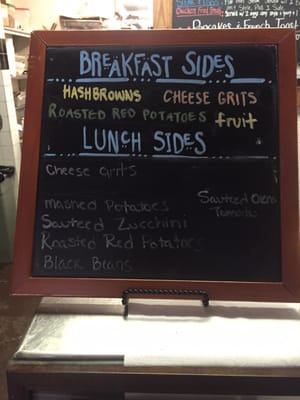 Pancakes & French Toast
BREAKFAST SIDES
HASHBROWNS CHEESE GRITS
ROASTED RED POTATOES fruit
LUNCH SIDES
Cheese Grits
Mashed Potatoes
Sauteed Zucchini
Roasted Red Potatoes
Black Beans
Sauteed Okra
Tomato